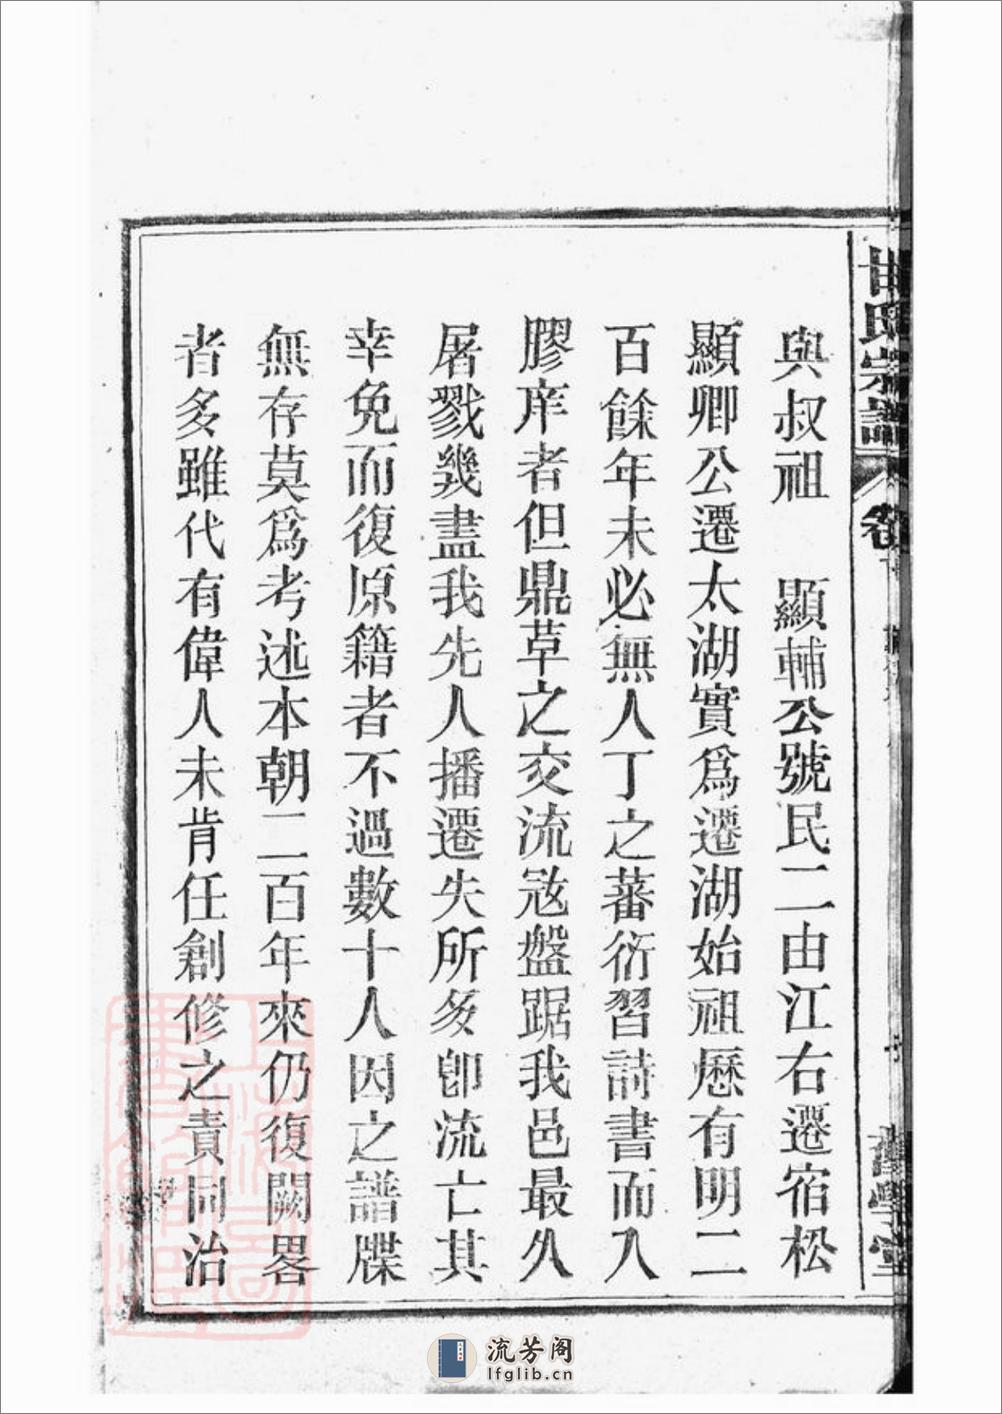 甘氏宗譜
卷
舊學堂
與叔祖　顯輔公號民二由江右遷宿松
顯卿公遷太湖實爲遷湖始祖歷有明二
百餘年未必無人丁之蕃衍習詩書而入
膠庠者但鼎草之交流宼盤踞我邑最久
屠戮幾盡我先人播遷失所多卽流亡其
幸免而復原籍者不過數十人因之譜牒
無存莫爲考述本朝二百年來仍復闕畧
者多雖代有偉人未肯任創修之責同治
上海圖書館藏
流芳阁
lfglib.cn